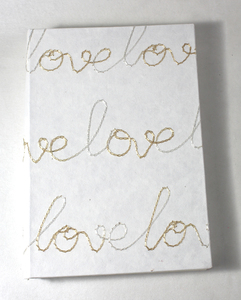 love love
ve love
love lov